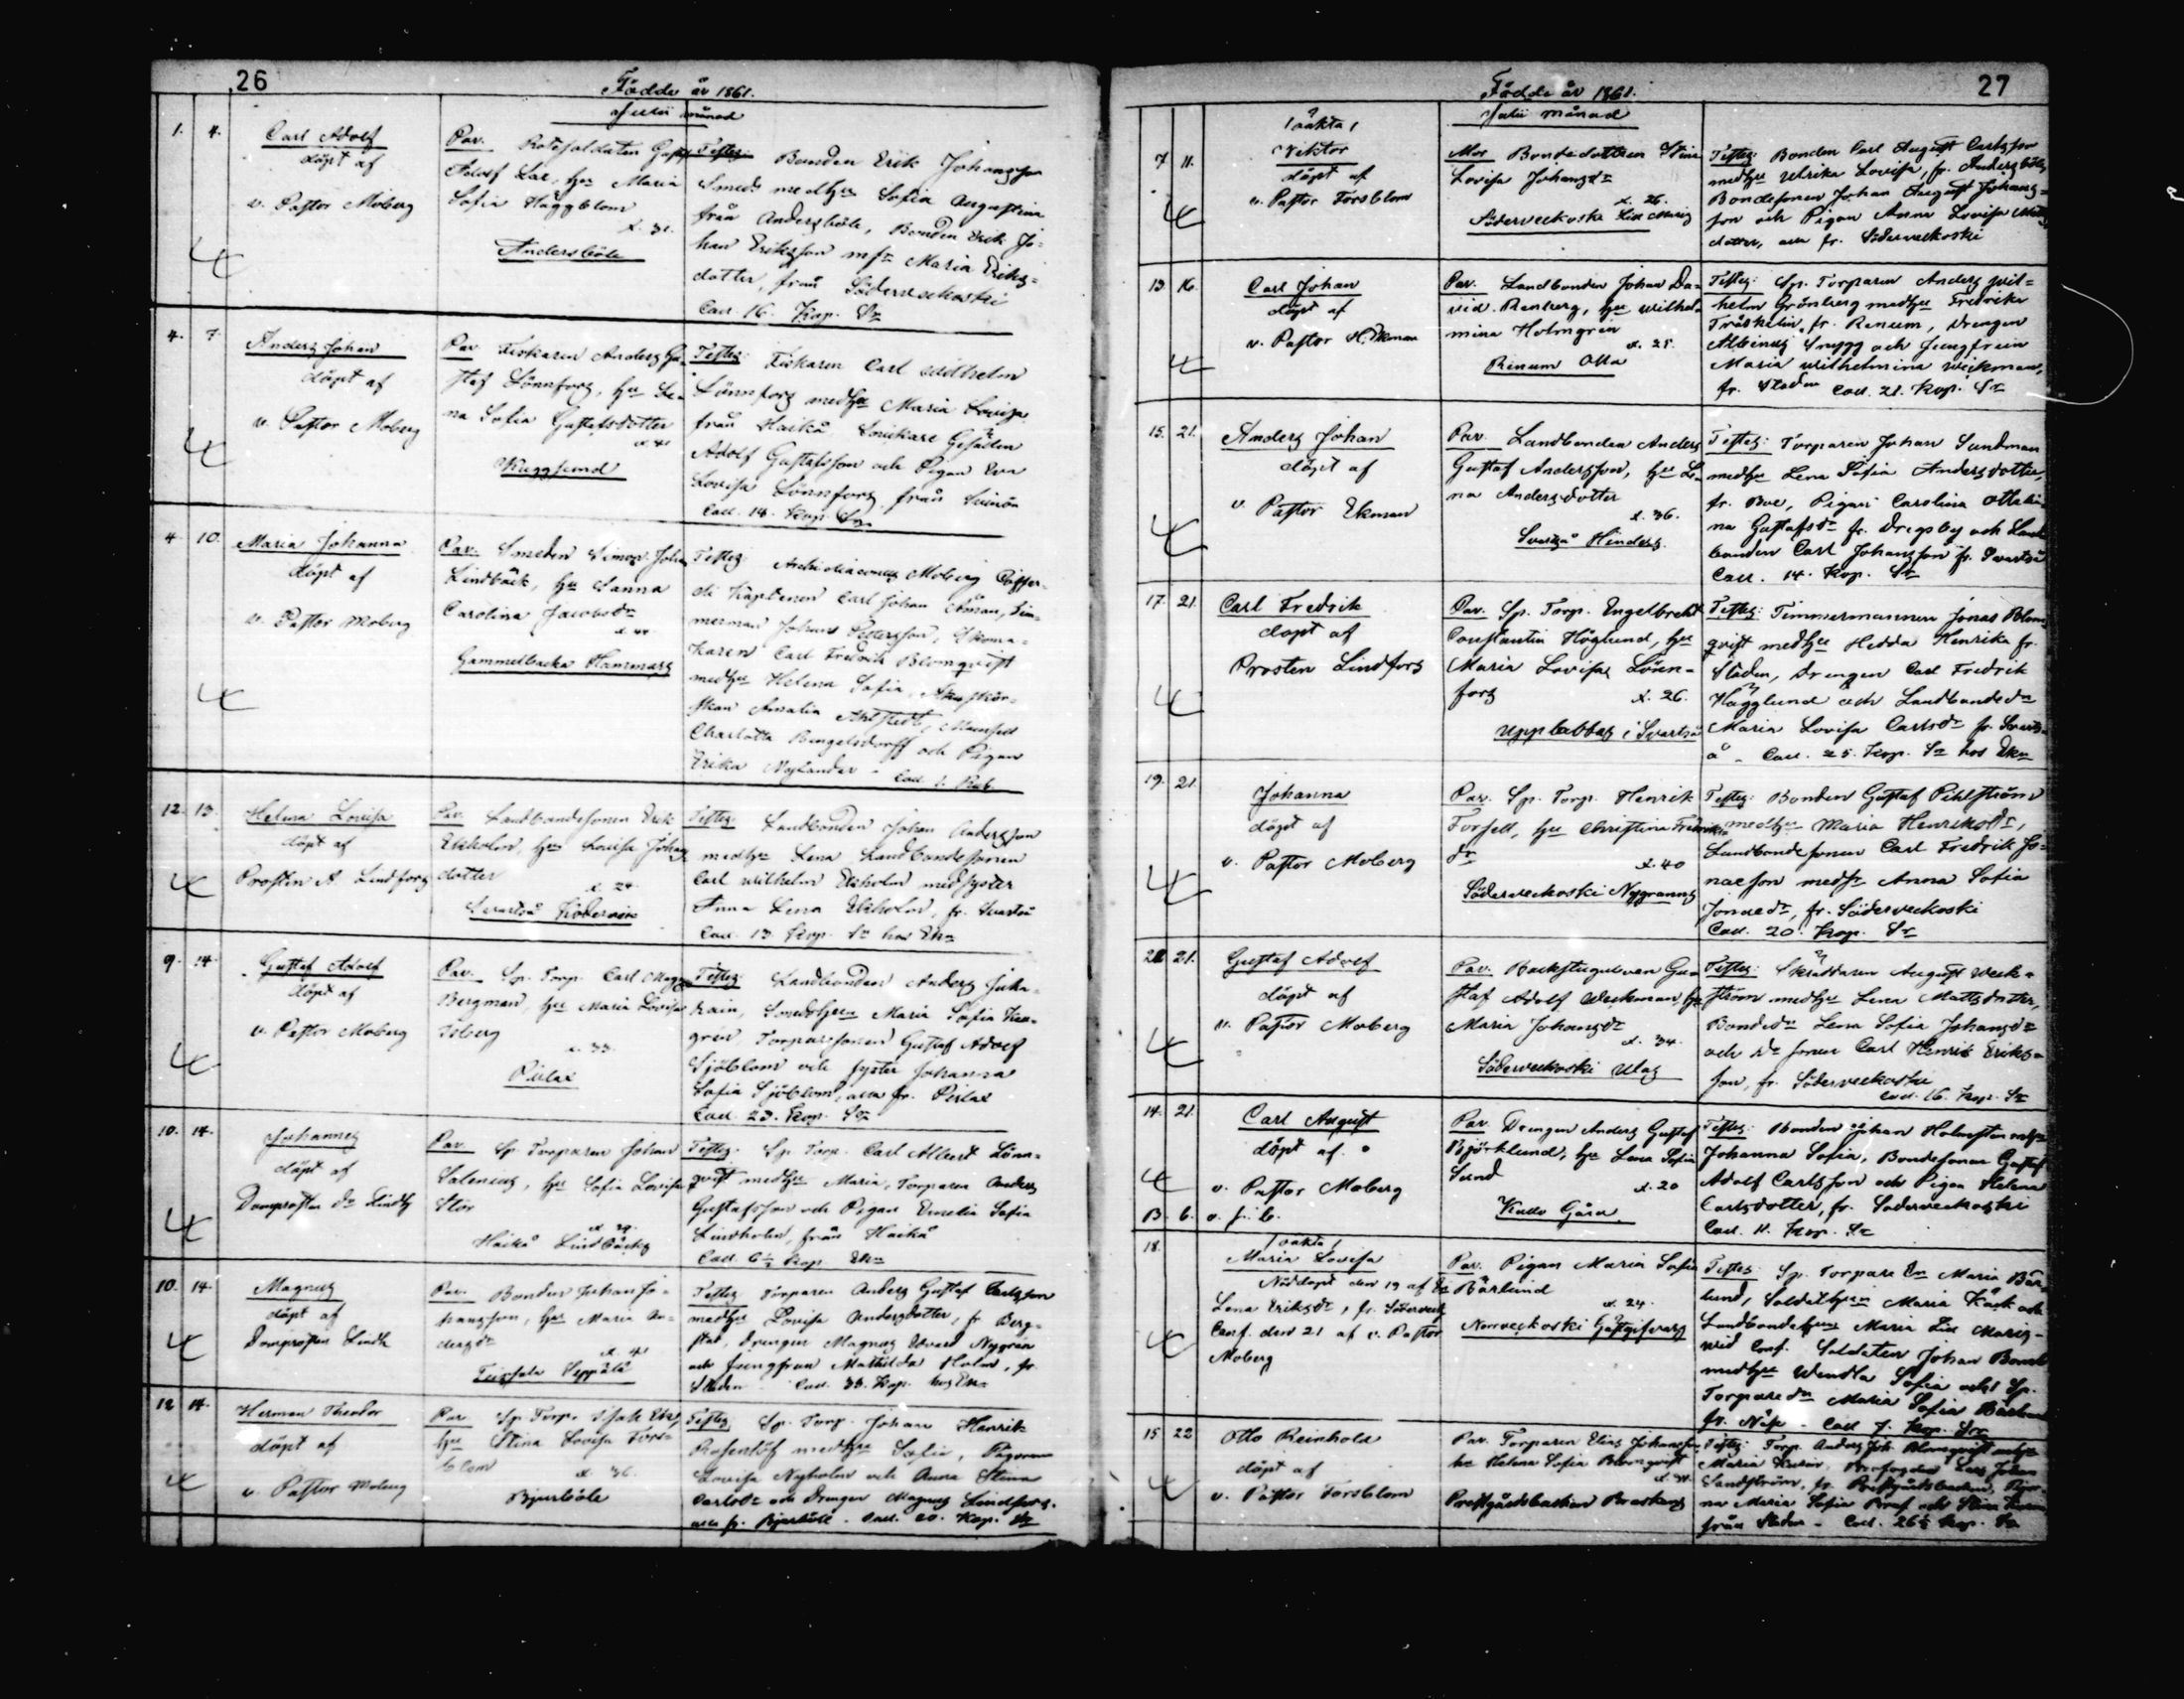 26
Födde år 1861.
Julii månad
1. 4.
Carl Adolf
döpt af
v. Pastor Moberg
Par. Rotesoldaten Gustaf
Adolf Lax, hu Maria
Sofia Häggblom
Andersböle
Testes: Bonden Erik Johansson
Smeds medhu Sofia Augustina
från Andersböle, Bonden Erik Jo-
han Eriksson m fr Maria Eriks-
dotter, från Söderveckoski
Cad. 16. Kop. Sr
4. 7.
Anders Johan
döpt af
v. Pastor Moberg
Par. Fiskaren Anders Gu-
staf Lönnfors, hu Le-
na Sofia Gustafsdotter
Kuggsund
Testes: Fiskaren Carl Wilhelm
Lönnfors medhu Maria Lovisa
från Haikå, Snickare Gesällen
Adolf Gustafsson och Pigan Eva
Lovisa Lönnfors från
Cad. 14. Kop. Sr
4. 10.
Maria Johanna
döpt af
v. Pastor Moberg
Par. Smeden Simon Johan
Lindbäck, hu Sanna
Carolina Jacobsdr
Gammelbacka Hammars
Testes: Archidiaconus Moberg
Kaptenen Carl Johan Åman, Tim-
merman Johans Pettersson, Skoma-
karen Carl Fredrik Blomqvist
medhu Helena Sofia,
Amalia Ahlstedt, Mamsell
Charlotta Bengelsdorff och Pigan
Erika Nylander - Cad. 1. Rub.
12. 13.
Helena Lovisa
döpt af
Prosten A. Lindfors
Par. Landbondesonen Erik
Ekholm, hu Lovisa Johans
dotter
Testes: Landbonden Johan Andersson
medhu Lena Landbondesonen
Carl Wilhelm Ekholm med syster
Anna Lena Ekholm, fr. Svartså
Cad. 13. Kop. Sr hos Ekn
9. 14.
Gustaf Adolf
döpt af
v. Pastor Moberg
Par. Sp. Torp. Carl Magnus
Bergman, hu Maria Lovisa
Isberg
x. 33.
Pirlax
Testes: Landbonden Anders
Smedhun Maria Sofia
Torparesonen Gustaf Adolf
Sjöblom och syster Johanna
Sofia Sjöblom, alla fr. Pirlax
Cad. 23. Kop. Sr
10. 14.
Johannes
döpt af
Domprosten Dr Lindh
Par. Sp. Torparen Johan
Salenius, hu Sofia Lovisa
Stor
Haikå Lindbäcks
Testes: Sp. Torp. Carl Albert Lönn-
qvist medhu Maria, Torparen Anders
Gustafsson och Pigan Emelia Sofia
Lindholm, från Haikå
Cad. 6½ Kop. Ekn
10. 14.
Magnus
döpt af
Domprosten Lindh
Par. Bonden Johan Jo-
hansson, hu Maria An-
dersdr
Seppälä
Testes: Torparen Anders Gustaf Carlsson
medhu Lovisa Andersdotter, fr Berg-
stad, Drengen Magnus Edvard Nygrén
och Jungfrun Mathilda Holm, fr.
Staden - Cad. 33. Kop. hos Ekn
12 14.
Herman Theodor
döpt af
v. Pastor Moberg
Par. Sp. Torp. Isak Ek,
hu Stina Lovisa Fors-
blom
x. 36.
Bjurböle
Testes: Sp. Torp. Johan Henrik
Rosenlöf medhu Sofia, Pigorna
Lovisa Nyholm och Anna Stina
Carlsdr och Drengen Magnus Lindfors,
alla fr. Bjurböle - Cad. 20. Kop. Sr
27
Födde år 1861.
Julii månad
7 11.
/oäkta/
Viktor
döpt af
v. Pastor Forsblom
Mor Bondedottren Stina
Lovisa Johansdr
x. 26.
Söderveckoski
Testes: Bonden Carl August Carlsson
medhu Ulrika Lovisa, fr. Andersböle
Bondesonen Johan August Johans-
son och Pigan Anna Lovisa
dotter, alla fr. Söderveckoski
13. 16.
Carl Johan
döpt af
v. Pastor Ekman
Par. Landbonden Johan Da-
vid Renberg, hu Wilhel-
mina Holmgren
x. 25.
Renum Olla
Testes: Sp. Torparen Anders Wil-
helm Grönberg medhu Fredrika
Träskelin, fr. Renum, Drengen
Albinus Snygg och Jungfrun
Maria Wilhelmina Weckman,
fr. Staden Cad. 21. Kop. Sr
15. 21.
Anders Johan
döpt af
v. Pastor Ekman
Par. Landbonden Anders
Gustaf Andersson, hu Le-
na Andersdotter
x. 36.
Svartså Hinders
Testes: Torparen Johan Sundman
medhu Lena Sofia Andersdotter,
fr. Boe, Pigan Carolina Ottilia-
na Gustafsdr fr. Dregsby och Land-
bonden Carl Johansson fr. Svartså
Cad. 14. Kop. Sr
17. 21.
Carl Fredrik
döpt af
Prosten Lindfors
Par. Sp. Torp. Engelbrekt
Constantin Höglund, hu
Maria Lovisa Lönn-
fors x. 26.
Upplabbas i Svartså
Testes: Timmermannen Jonas Blom-
qvist medhu Hedda Henrika fr.
Staden, Drengen Carl Fredrik
Hägglund och Landbondedr
Maria Lovisa Carlsdr fr. Svarts-
å - Cad. 25. Kop. Sr hos Ekn
19. 21.
Johanna
döpt af
v. Pastor Moberg
Par. Sp. Torp. Henrik
Forsell, hu Christina Fredriks-
dr
x. 40
Söderveckoski Nygranns
Testes: Bonden Gustaf Pihlström
medhu Maria Henriksdr,
Landbondesonen Carl Fredrik Jo-
nasson medsr Anna Sofia
Jonasdr, fr. Söderveckoski
Cad. 20. Kop. Sr
21.
Gustaf Adolf
döpt af
v. Pastor Moberg
Par. Backstugukarlen Gu-
staf Adolf Weckman, hu
Maria Johansdr
x. 34.
Söderveckoski
Testes: Skräddaren August Weck-
ström medhu Lena Mattsdotter,
Bondedr Lena Sofia Johansdr
och Dr sonen Carl Henrik Eriks-
son, fr. Söderveckoski
Cad. 16. Kop. Sr
14. 21.
Carl August
döpt af
v. Pastor Moberg
B. 6.
Par. Drengen Anders Gustaf
Björklund, hu Lena Sofia
Sund
x. 20
Kullo Gård
Testes: Bonden Johan Holmsten medhu
Johanna Sofia, Bondesonen Gustaf
Adolf Carlsson och Pigan Helena
Carlsdotter, fr. Söderveckoski
Cad. 11. Kop. Sr
18.
/oäkta/
Maria Lovisa
Nöddöpt den 19 af
Lena Eriksdr, fr. Söderveck
Conf. den 21 af v. Pastor
Moberg
Par. Pigan Maria Sofia
Bärlund
x. 24.
Norrveckoski Gästgifvars
Testes: Sp. Torpare En Maria Bär-
lund, Soldathun Maria Käck och
Landbondehun Maria
vid Conf. Soldaten Johan
medhu Wendla Sofia och Sp.
Torparedr Maria Sofia Bärlund
fr. Näse - Cad. 7. Kop. Sr
15 22
Otto Reinhold
döpt af
v. Pastor Forsblom
Par. Torparen Elias Johansson
hu Helena Sofia Blomqvist
Prestgårdsbackan Braskens
Testes: Torp. Anders Joh. Blomqvist medhu
Maria
Sandström, fr. Prestgårdsbackan, Pigor-
na Maria Sofia och Stina
från Staden - Cad. 26½ Kop. Sr